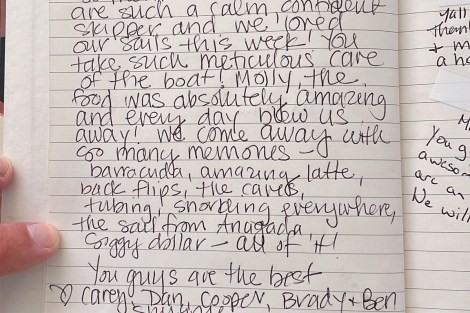 are such a calm confident
skipper and we loved
our sails this week! You
take such meticulous care
of the boat! Molly, the
food was absolutely amazing
and every day blew us
away! We come away with
so many memories –
barracuda, amazing latte,
back flips, the caves,
tubing, snorkling everywhere,
the sail from Anagada,
Soggy dollar – all of it!
You guys are the best
♡ Carey, Dan, Cooper, Brady + Ben
yall
Thank
+ m
a ha
M
You g
awesom
are an
We will